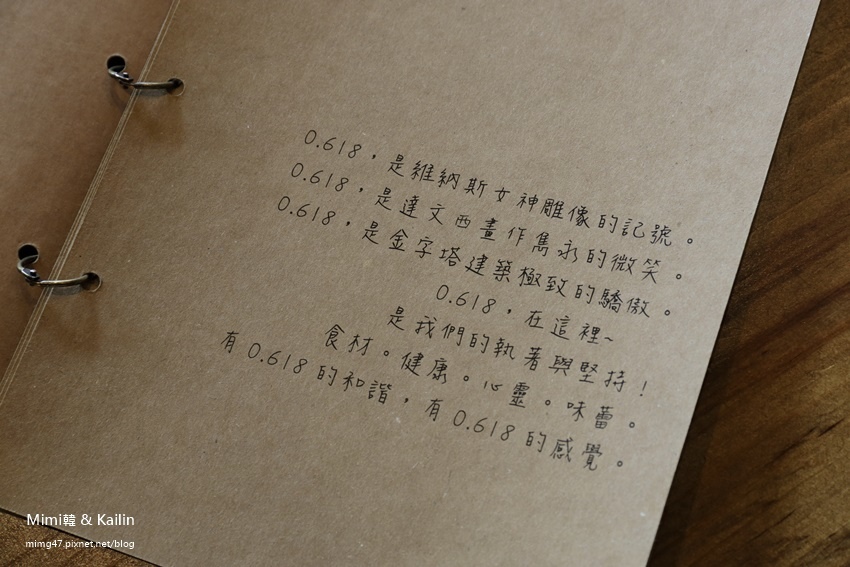 0.618，是維納斯女神雕像的記號。
0.618，是達文西畫作雋永的微笑。
0.618，是金字塔建築極致的驕傲。
0.618，在這裡~
是我們的執著與堅持！
食材。健康。心靈。味蕾。
有 0.618 的和諧，有 0.618 的感覺。
Mimi韓 & Kailin
mimg47.pixnet.net/blog